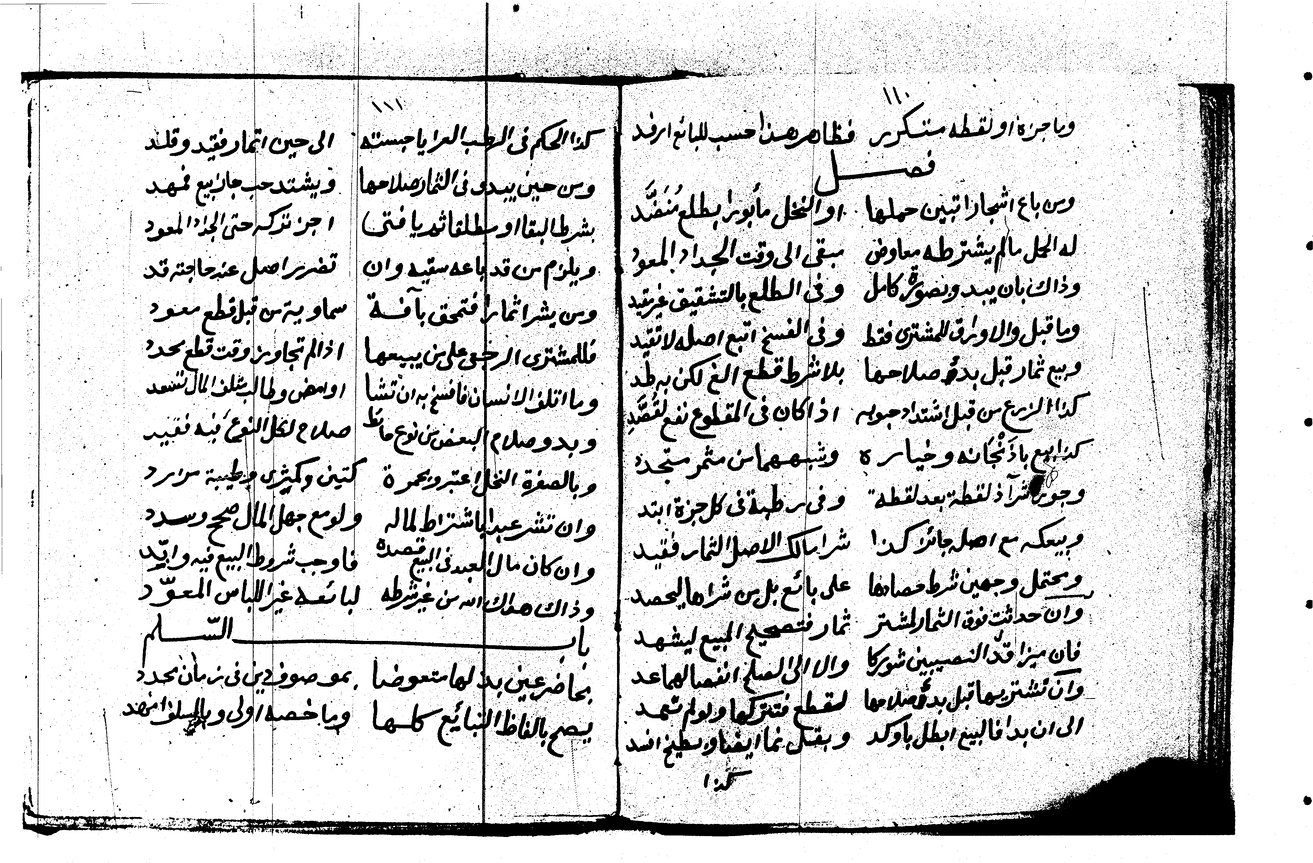 ١١٠
وما جزة او لقطه متكرر فظاهر هذا احسب للبائع ارفد
فصل
ومن باع اشجارا تبين حملها او النخل مأبورا بطلع مُنَضَّد
له الحمل مالم يشترطه معاوض مبقى الى وقت الجداد المعود
وذاك بان يبدو بصورة كامل وفى الطلع بالتشقيق غير مقيد
وما قبل والاوراق للمشتري فقط وفى الفسخ اتبع اصله لا تقيد
وبيع ثمار قبل بدو صلاحها بلا شرط قطع الغ لكن به طد
كذا الزرع من قبل اشتداد حبوبه اذا كان فى المقطوع نفع لقُصَّدِ
كذا بيع باذنجانه وخياره وشبههما من مثمر متجدد
وجوز شرآذ لقطة بعد لقطة وفى رطبة فى كل جزة ابتد
وبيعكه مع اصله جائز كذا شرا مالك الاصل الثمار فقيد
ويحتمل وجهين شرط حصادها على بائع بل من شراها ليحصد
وان حدثت فوق الثمار لمشتر ثمار فتصحيح المبيع ليشهد
فان ميزا قدر النصيبين شوركا والا الى الصلح
وان تشتريها قبل بدو صلاحها لقطع فتتركها ولو لم تعمد
الى ان بدا فالبيع ابطل باوكد وبقل نما ايضا وبطيخ افسد
كذا
١١١
كذا الحكم فى الرطب العرايا حبسته الى حين اتمار فقيد وقلد
ومن حين يبدو فى الثمار صلاحها ويشتد حب جاز بيع فمهد
بشرط البقا او مطلقا ثم يا فتى اجز تركه حتى الجذاذ المعود
ويلزم من قد باعه سقيه وان تضرر اصل عند حاجته قد
ومن يشر اثمارا فتمحق بآفة سماوية من قبل قطع معود
فللمشتري الرجعى على من يبيعها اذا لم تجاوز وقت قطع محدد
وما اتلف الانسان فافسخ به ان تشا او امض وطالب متلف المال تسعد
وبدو صلاح البعض من نوع حائط صلاح لكل النوع فيه فقيد
وبالصفرة النخل اعتبر وبحمرة كتين وكمثرى وطيبة مزارد
وان تشر عبدا باشتراط لماله ولو مع جهل المال صح وسدد
وان كان مال العبد فى البيع قصده فاوجب شروط البيع فيه وايّد
وذاك من غير شرطه لبائعه غير اللباس المعوّد
باب السَّلم
بحاضر عين بدلها متعوضا بموصوف دين فى زمان محدد
يصح بالفاظ التبايع كلها وما خصه اولى